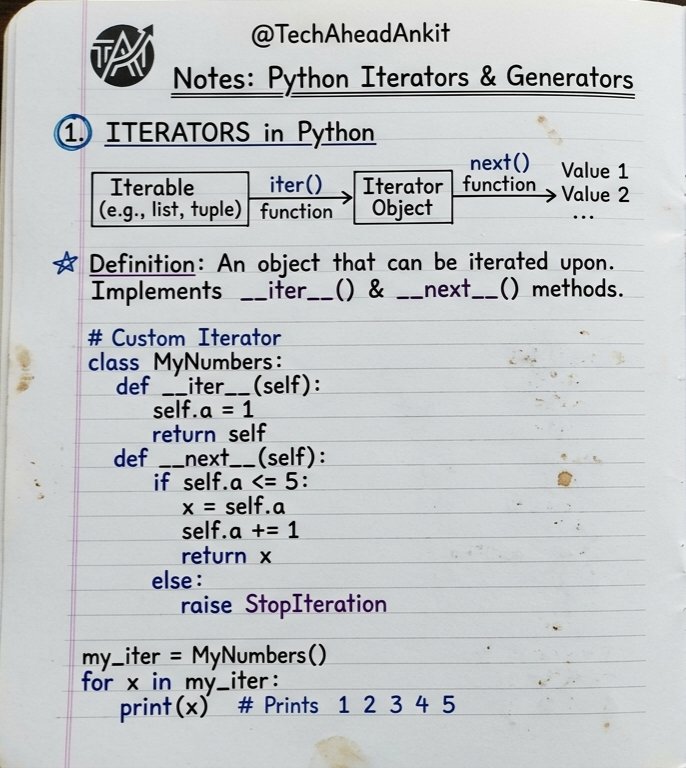 TAA
@TechAheadAnkit
Notes: Python Iterators & Generators
1. ITERATORS in Python
Iterable
(e.g., list, tuple)
iter()
function
Iterator
Object
next()
function
Value 1
Value 2
...
☆ Definition: An object that can be iterated upon.
Implements __iter__() & __next__() methods.
# Custom Iterator
class MyNumbers:
def __iter__(self):
self.a = 1
return self
def __next__(self):
if self.a <= 5:
x = self.a
self.a += 1
return x
else:
raise StopIteration
my_iter = MyNumbers()
for x in my_iter:
print(x) # Prints 1 2 3 4 5